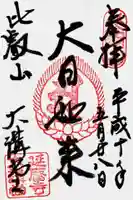 奉拝
平成十八年
五月廿八日
大日如来
比叡山
大講堂
延暦寺